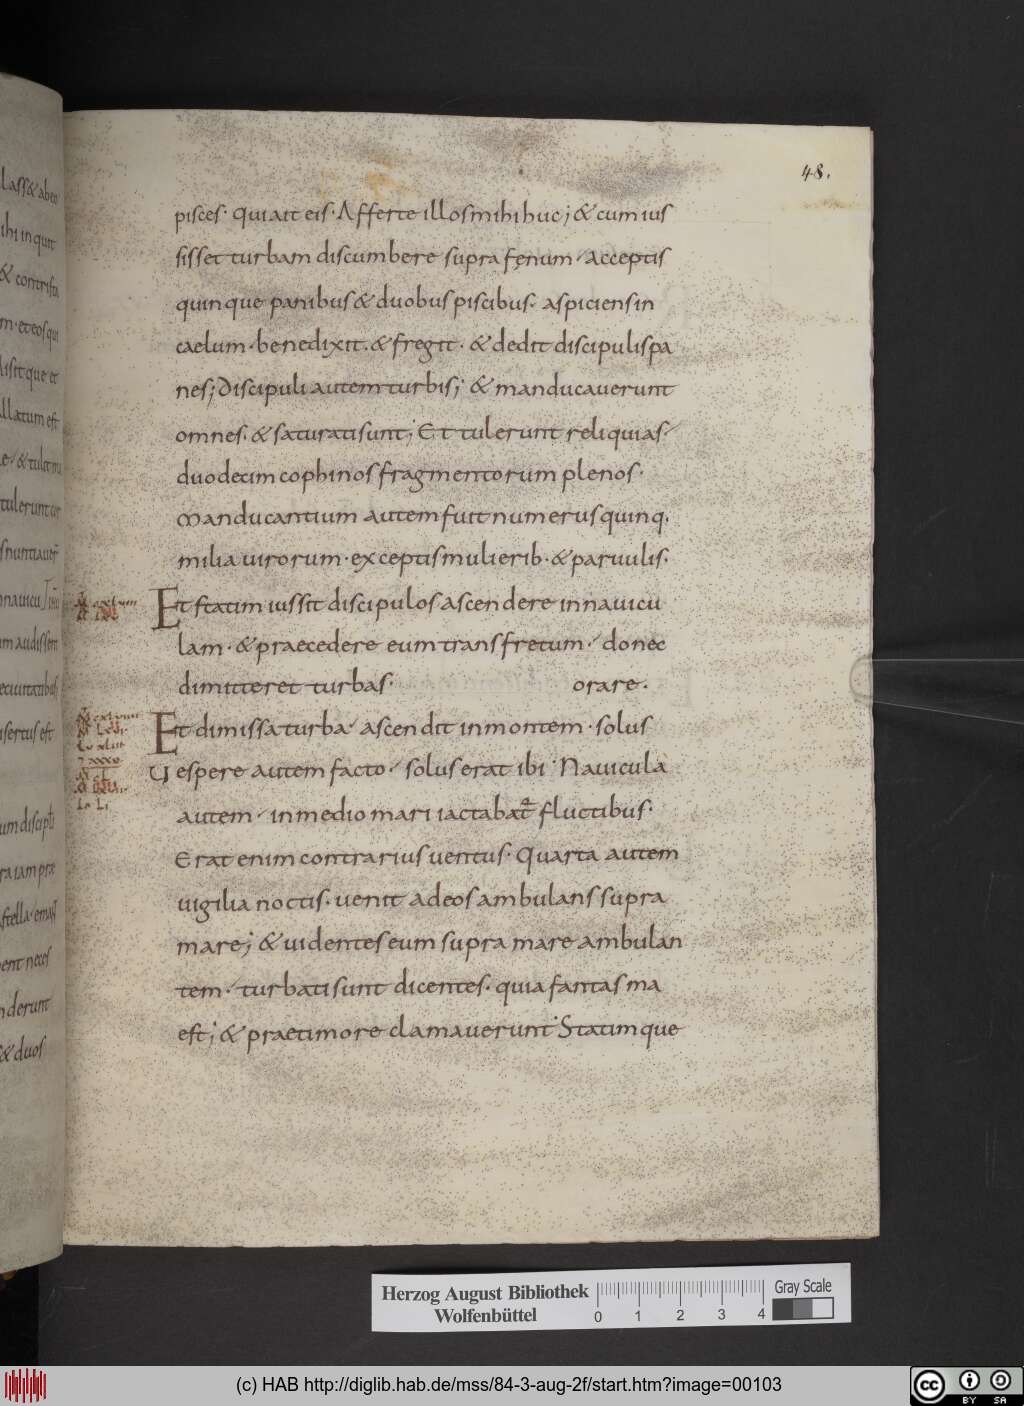 48.
pisces. Qui ait eis. Afferte illos mihi huc; & cum ius
sisset turbam discumbere supra fęnum. acceptis
quinque panibus & duobus piscibus. aspiciens in
caelum. benedixit. & fregit. & dedit discipulis pa
nes; Discipuli autem turbis; & manducauerunt
omnes. & saturati sunt; Et tulerunt reliquias.
duodecim cophinos fragmentorum plenos.
Manducantium autem fuit numerus quinq.
milia uirorum. exceptis mulierib. & paruulis.
Et statim iussit discipulos ascendere in nauicu
lam. & praecedere eum trans fretum. donec
dimitteret turbas. orare.
Et dimissa turba. ascendit in montem. solus
Vespere autem facto. solus erat ibi. Nauicula
autem. in medio mari iactabat fluctibus.
Erat enim contrarius uentus. Quarta autem
uigilia noctis. uenit ad eos ambulans supra
mare; & uidentes eum supra mare ambulan
tem. turbati sunt dicentes. quia fantasma
est; & prae timore clamauerunt. Statimque
Herzog August Bibliothek
Wolfenbüttel
0 1 2 3 4
Gray Scale
(c) HAB http://diglib.hab.de/mss/84-3-aug-2f/start.htm?image=00103
cc BY SA